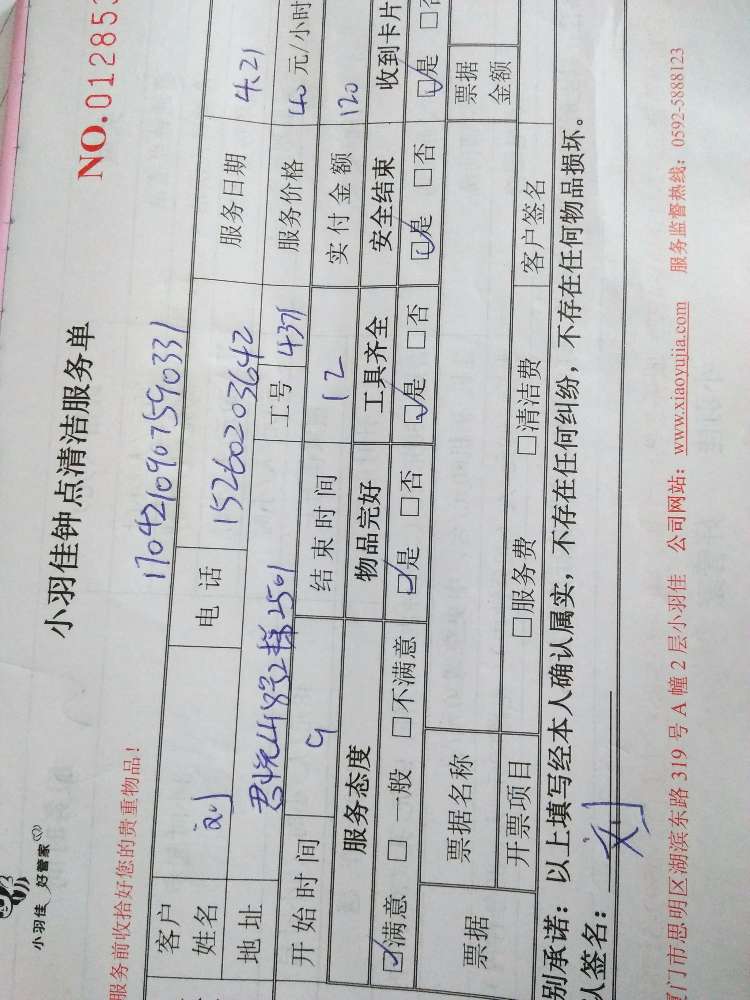 小羽佳 好管家
小羽佳钟点清洁服务单
NO.012853
服务前收拾好您的贵重物品！
1704210907590331
客户姓名 刘 电话 15260203642 服务日期 4.21
地址 2501 工号 4371 服务价格 40元/小时
开始时间 9 结束时间 12 实付金额 120
服务态度 物品完好 工具齐全 安全结束 收到卡片
☑满意 □一般 □不满意 ☑是 □否 ☑是 □否 ☑是 □否 ☑是 □否
票据 票据名称 票据金额
开票项目 □服务费 □清洁费 客户签名
别承诺：以上填写经本人确认属实，不存在任何纠纷，不存在任何物品损坏。
人签名：刘
厦门市思明区湖滨东路319号A幢2层小羽佳 公司网站：www.xiaoyujia.com 服务监督热线：0592-5888123